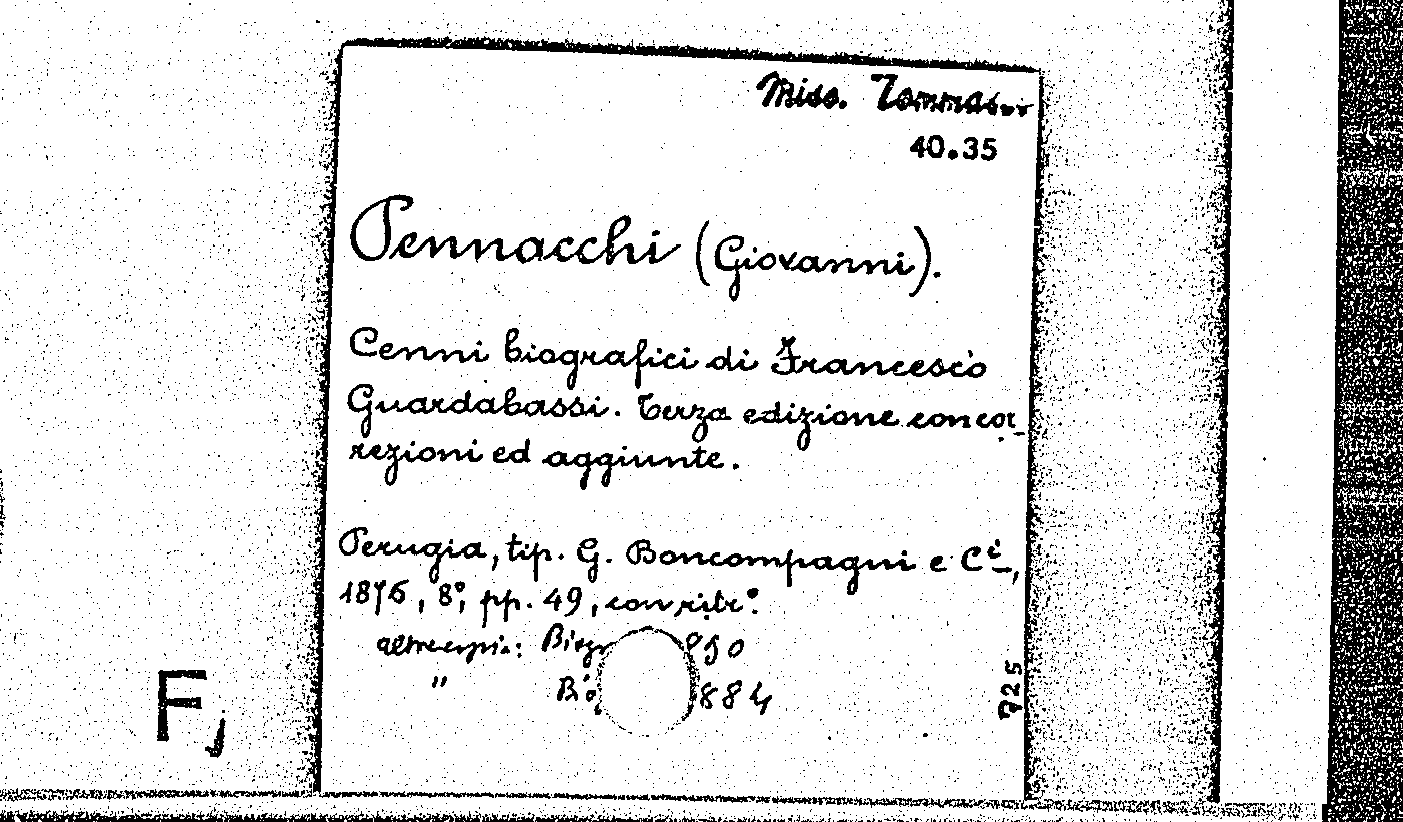 Misc. Tommasini
40.35
Pennacchi (Giovanni).
Cenni biografici di Francesco
Guardabassi. Terza edizione con cor_
rezioni ed aggiunte.
Perugia, tip. G. Boncompagni e Cⁱ,
1876, 8°, pp. 49, con ritr°.
altre copie: Biogr 890
" Bio 884
725
F